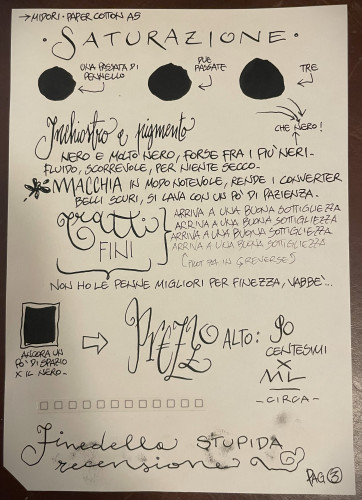 → MIDORI - PAPER COTTON A5
· SATURAZIONE ·
UNA PASSATA DI
PENNELLO
DUE
PASSATE
TRE
CHE NERO!
Inchiostro e pigmento
NERO E MOLTO NERO, FORSE FRA I PIU' NERI-
FLUIDO, SCORREVOLE, PER NIENTE SECCO.
MACCHIA IN MODO NOTEVOLE, RENDE I CONVERTER
BELLI SCURI, SI LAVA CON UN PO' DI PAZIENZA.
Tratti
FINI
ARRIVA A UNA BUONA SOTTIGLIEZZA
ARRIVA A UNA BUONA SOTTIGLIEZZA
ARRIVA A UNA BUONA SOTTIGLIEZZA
ARRIVA A UNA BUONA SOTTIGLIEZZA
(PILOT IN REVERSE)
NON HO LE PENNE MIGLIORI PER FINEZZA, VABBE'...
ANCORA UN
PO' DI SPAZIO
X IL NERO-
PREZZO ALTO: 90
CENTESIMI
X
ML
- CIRCA -
Fine della STUPIDA
recensione
PAG 3